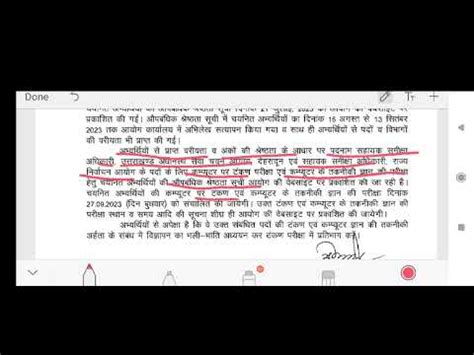 Done
चयनित अभ्यर्थियों की औपबंधिक श्रेष्ठता सूची दिनांक 21 जुलाई, 2023 को आयोग की वेबसाइट पर
प्रकाशित की गई। औपबंधिक श्रेष्ठता सूची में चयनित अभ्यर्थियों का दिनांक 16 अगस्त से 13 सितंबर
2023 तक आयोग कार्यालय में अभिलेख सत्यापन किया गया व साथ ही अभ्यर्थियों से पदों व विभागों
की वरीयता भी प्राप्त की गई।
अभ्यर्थियों से प्राप्त वरीयता व अंकों की श्रेष्ठता के आधार पर पदनाम सहायक समीक्षा
अधिकारी, उत्तराखण्ड अधीनस्थ सेवा चयन आयोग, देहरादून एवं सहायक समीक्षा अधिकारी, राज्य
निर्वाचन आयोग के पदों के लिए कम्प्यूटर पर टंकण परीक्षा एवं कम्प्यूटर के तकनीकी ज्ञान की परीक्षा
हेतु चयनित अभ्यर्थियों की औपबंधिक श्रेष्ठता सूची आयोग की वेबसाइट पर प्रकाशित की जा रही है।
चयनित अभ्यर्थियों की कम्प्यूटर पर टंकण एवं कम्प्यूटर के तकनीकी ज्ञान की परीक्षा दिनांक
27.09.2023 (दिन बुधवार) को संचालित की जायेगी। उक्त टंकण एवं कम्प्यूटर के तकनीकी ज्ञान की
परीक्षा स्थान व समय आदि की सूचना शीघ्र ही आयोग की वेबसाइट पर प्रकाशित की जायेगी।
अभ्यर्थियों से अपेक्षा है कि वे उक्त संबंधित पदों की टंकण एवं कम्प्यूटर ज्ञान की तकनीकी
अर्हता के संबंध में विज्ञापन का भली-भांति अध्ययन कर टंकण परीक्षा में प्रतिभाग करें।